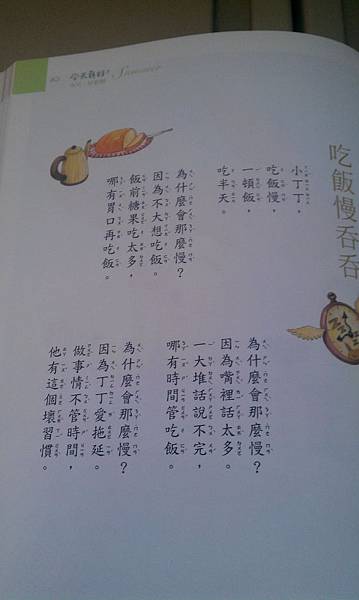 今天真好！
Summer
吃飯慢吞吞
小丁丁，
吃飯慢，
一頓飯，
吃半天。
為什麼會那麼慢？
因為不大想吃飯。
飯前糖果吃太多，
哪有胃口再吃飯。
為什麼會那麼慢？
因為嘴裡話太多。
一大堆話說不完，
哪有時間管吃飯。
為什麼會那麼慢？
因為丁丁愛拖延。
做事情不管時間，
他有這個壞習慣。